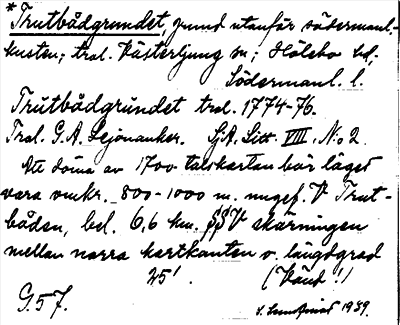 *Trutbådgrundet, grund utanför södermanl.-
kusten; tral. Västerljung sn; Hölebo hd;
Södermanl. l.
Trutbådgrundet tral. 1774-76.
Tral. G.A. Lejonanker. SjA. Litt. VIII. No 2.
Att döma av 1700-talskartan bör läget
vara omkr. 800-1000 m. ungef. V Trut-
båden, bel. 6,6 km. SSV skärningen
mellan norra kartkanten o. längdgrad
25'. (Vänd!)
G.57. 1939.